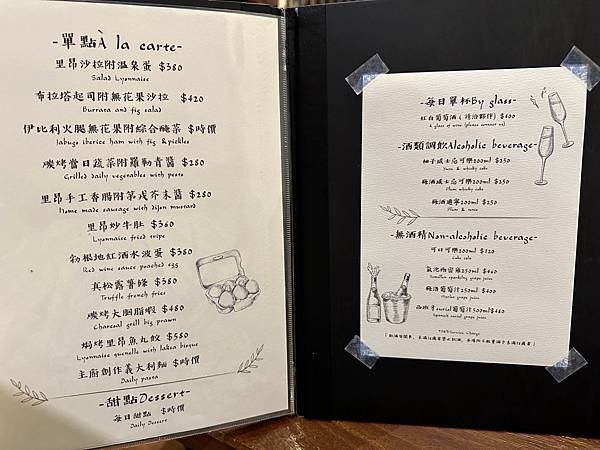 -單點À la carte-
里昂沙拉附溫泉蛋 $380
Salad Lyonnaise
布拉塔起司附無花果沙拉 $420
Burrata and fig salad
伊比利火腿無花果附綜合醃菜 $時價
Jabugo iberico ham with fig & pickles
碳烤當日蔬菜附羅勒青醬 $280
Grilled daily vegetables with pesto
里昂手工香腸附第戎芥末醬 $280
Home made sausage with dijon mustard
里昂炒牛肚 $360
Lyonnaise fried tripe
勃根地紅酒水波蛋 $380
Red wine sauce poached egg
真松露薯條 $380
Truffle french fries
碳烤大胭脂蝦 $480
Charcoal grill big prawn
焗烤里昂魚丸餃 $580
Lyonnaise quenelle with laksa bisque
主廚創作義大利麵 $時價
Daily pasta
-甜點Dessert-
每日甜點 $時價
Daily Dessert
-每日單杯By glass-
紅白葡萄酒(請洽夥伴) $400
A glass of wine (please contact us)
-酒類調飲Alcoholic beverage-
柚子威士忌可樂200ml $250
Yuzu & whisky coke
梅酒威士忌可樂200ml $250
Plum & whisky coke
梅酒通寧200ml $250
Plum & tonic
-無酒精Non-alcoholic beverage-
可口可樂200ml $120
Coke cola
氣泡榭密雍250ml $460
Semillon sparkling grape juice
梅洛葡萄汁250ml $400
Merlot grape juice
西班牙 葡萄汁500ml$480
Spanish grape juice
*10%Service Charge